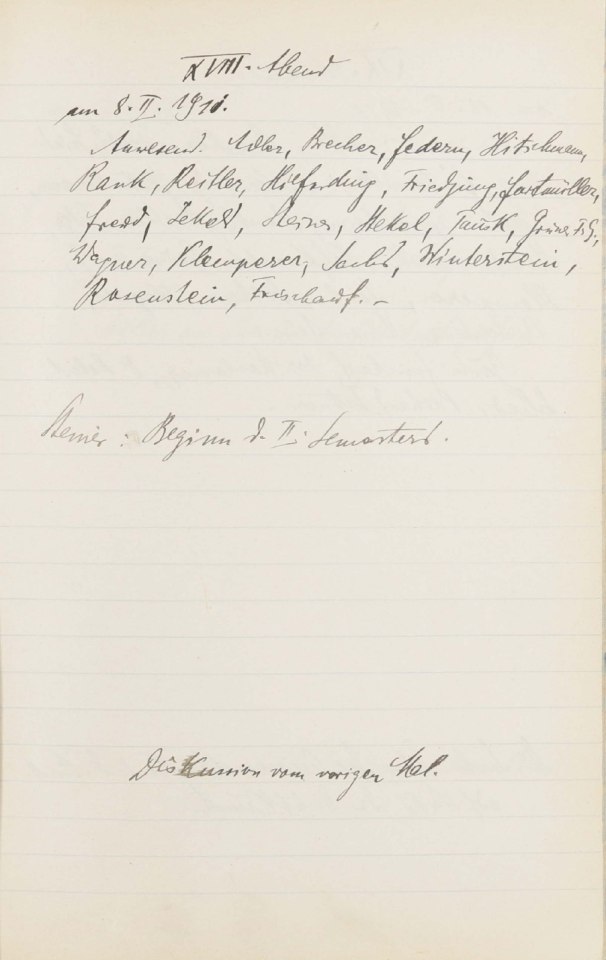 XVIII. Abend
am 8. II. 1911.
Anwesend. Adler, Brecher, Federn, Hitschmann,
Rank, Reitler, Hilferding, Friedjung, Furtmüller,
Freud, Jekels, Steiner, Stekel, Tausk, Grüner
Wagner, Klemperer, Sachs, Winterstein,
Rosenstein, Frischauf. –
Steiner : Beginn d. II. Semesters.
Diskussion vom vorigen Mal.